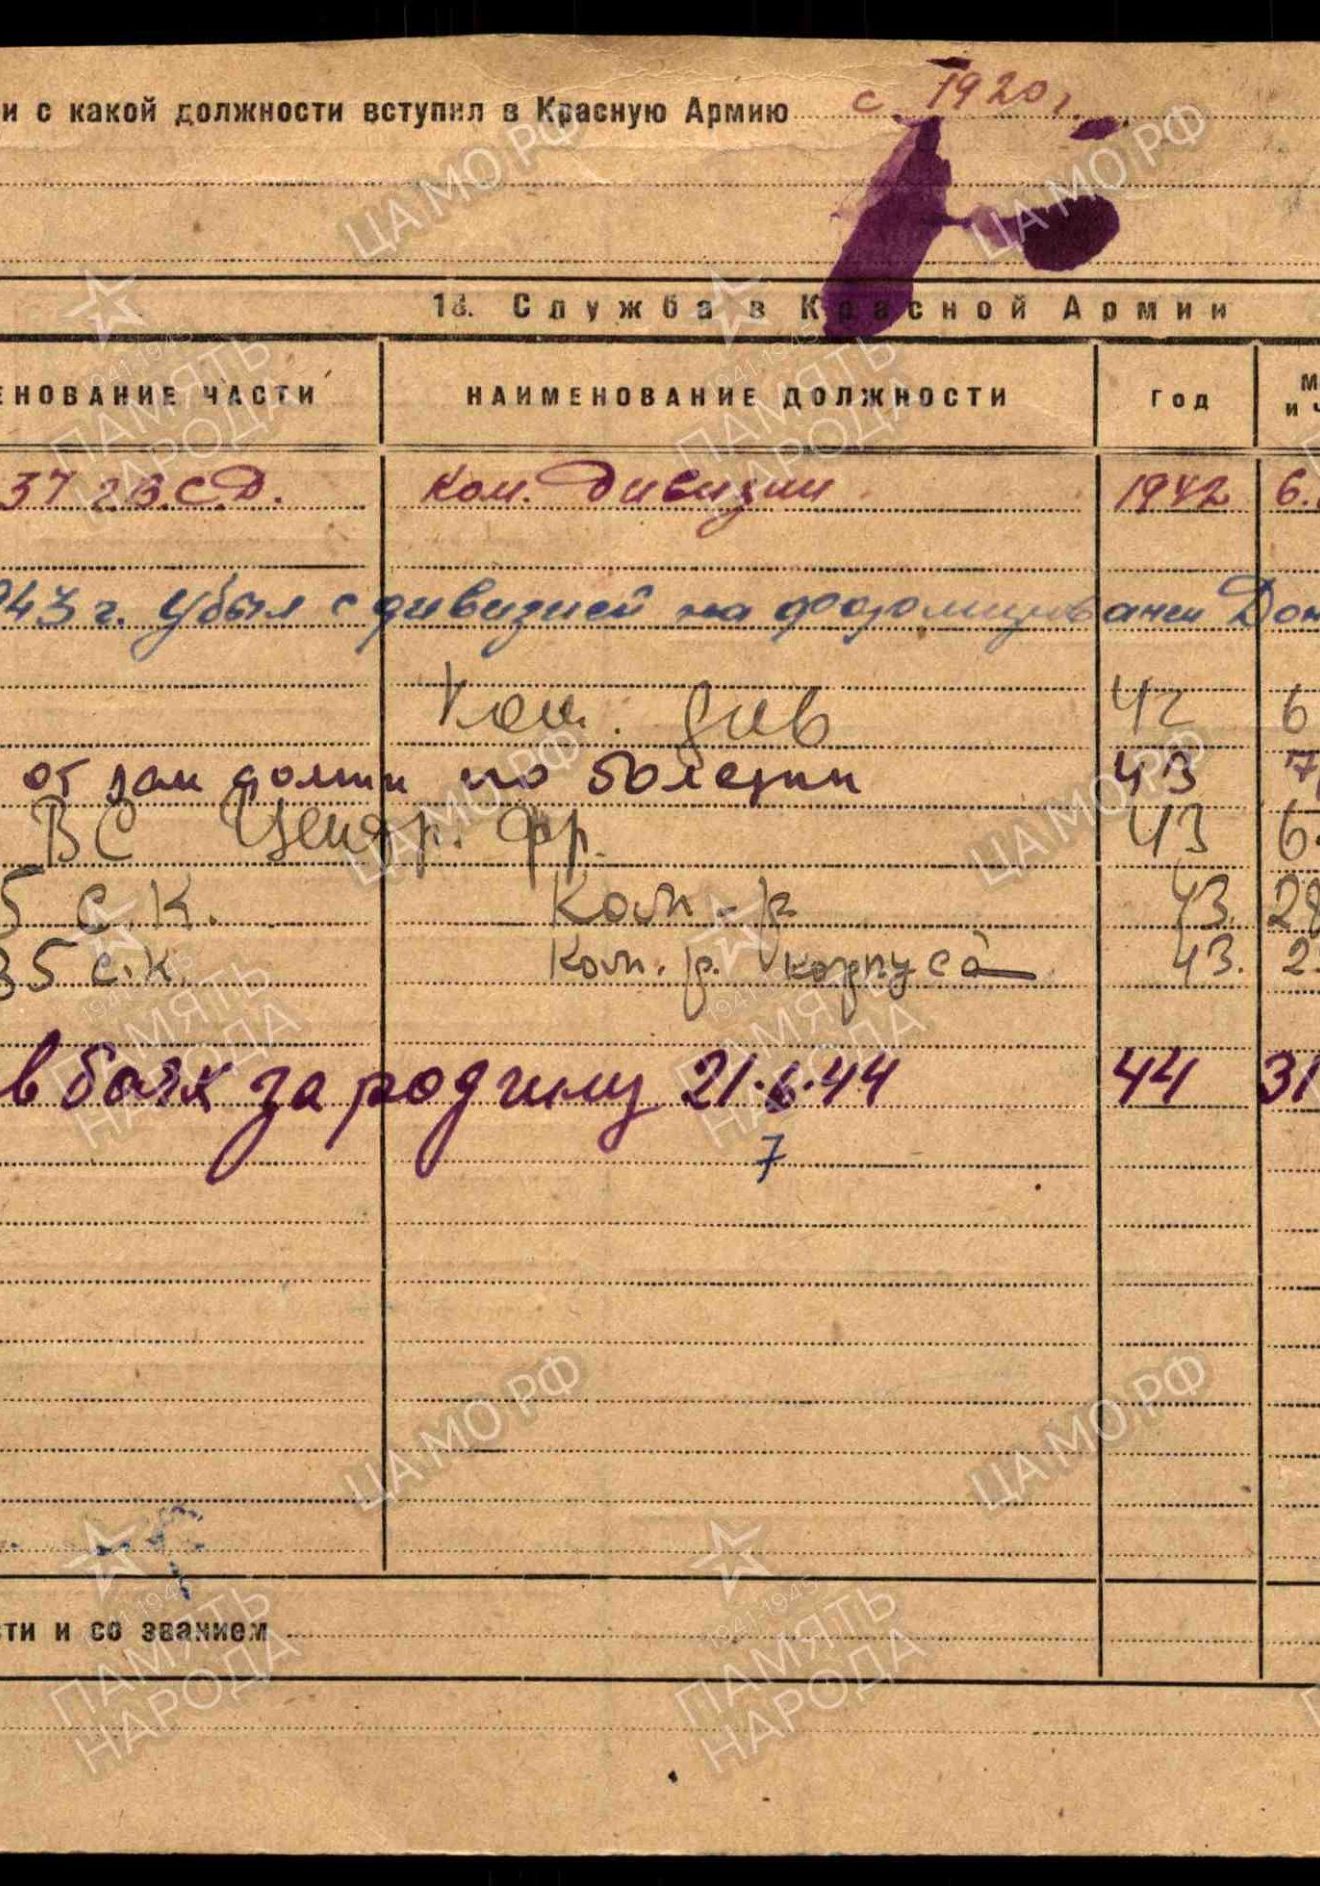 и с какой должности вступил в Красную Армию с 1920 г.
18. Служба в Красной Армии
ЕНОВАНИЕ ЧАСТИ НАИМЕНОВАНИЕ ДОЛЖНОСТИ Год М
и ч
37 гв.С.Д. Ком. Дивизии 1942 6.
943 г. Убыл с дивизией на формировании Дон
Ком. див 42 6
от зан должн по болезни 43 7
ВС Центр. фр. 43 6
5 с.к. Ком-р 43. 28
35 с.к. Ком.р. корпуса 43. 2
в боях за родину 21.6.44 44 31
7
сти и со званием
ЦАМО РФ
1941-1945
ПАМЯТЬ
НАРОДА